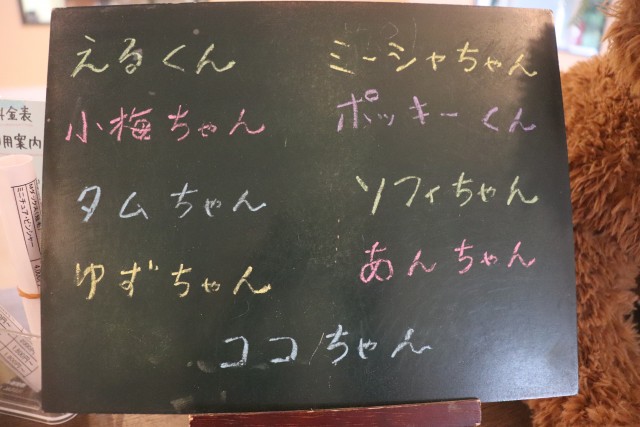 えるくん
ミーシャちゃん
小梅ちゃん
ポッキーくん
タムちゃん
ソフィちゃん
ゆずちゃん
あんちゃん
ココちゃん
金表
用案内
ミニチュアピンシャー